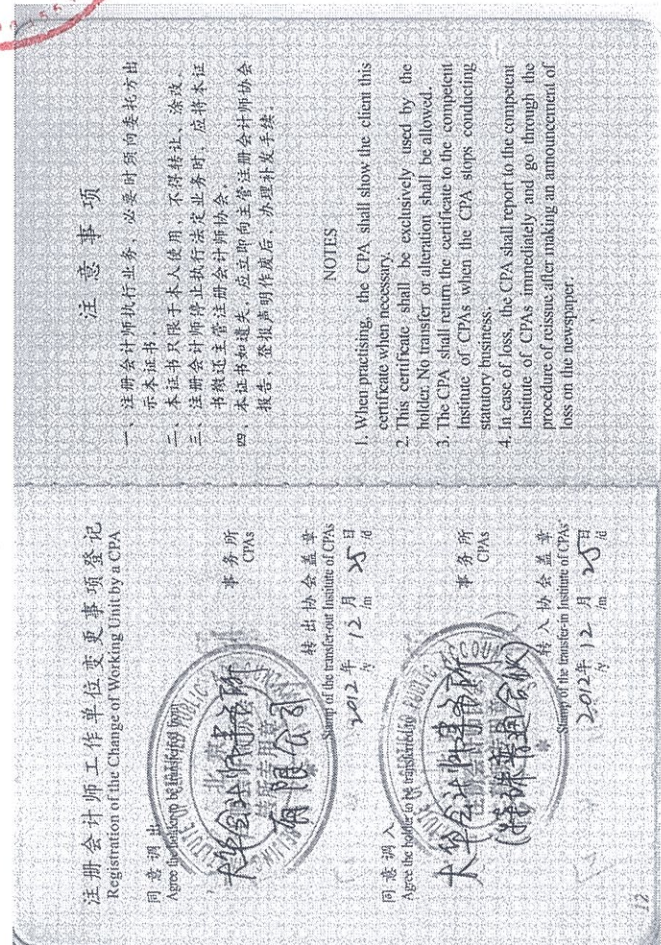 注册会计师工作单位变更事项登记
Registration of the Change of Working Unit by a CPA
同意调出
Agree the holder to be transferred from
大华会计师事务所
有限公司
事务所
CPAs
转所专用章
转出协会盖章
Stamp of the transfer-out Institute of CPAs
2012年 12月 25日
/y /m /d
同意调入
Agree the holder to be transferred to
大华会计师事务所
(特殊普通合伙)
事务所
CPAs
转入协会盖章
Stamp of the transfer-in Institute of CPAs
2012年 12月 25日
/y /m /d
12
注意事项
一、注册会计师执行业务，必要时须向委托方出
示本证书。
二、本证书只限于本人使用，不得转让、涂改。
三、注册会计师停止执行法定业务时，应将本证
书缴还主管注册会计师协会。
四、本证书如遗失，应立即向主管注册会计师协会
报告，登报声明作废后，办理补发手续。
NOTES
1. When practising, the CPA shall show the client this
certificate when necessary.
2. This certificate shall be exclusively used by the
holder. No transfer or alteration shall be allowed.
3. The CPA shall return the certificate to the competent
Institute of CPAs when the CPA stops conducting
statutory business.
4. In case of loss, the CPA shall report to the competent
Institute of CPAs immediately and go through the
procedure of reissue after making an announcement of
loss on the newspaper.